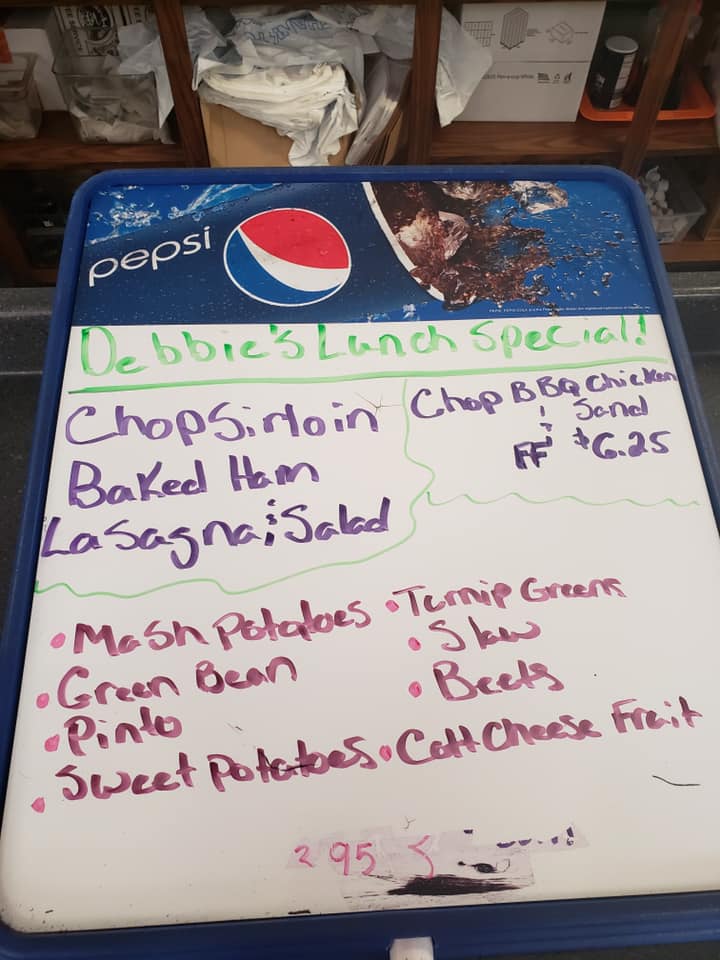 pepsi
Debbie's Lunch Special!
Chop Sirloin
Baked Ham
Lasagna & Salad
Chop BBQ Chicken
Sand
&
FF $6.25
• Mash Potatoes
• Green Bean
• Pinto
• Sweet Potatoes
• Turnip Greens
• Slaw
• Beets
• Cott Cheese Fruit
2 95